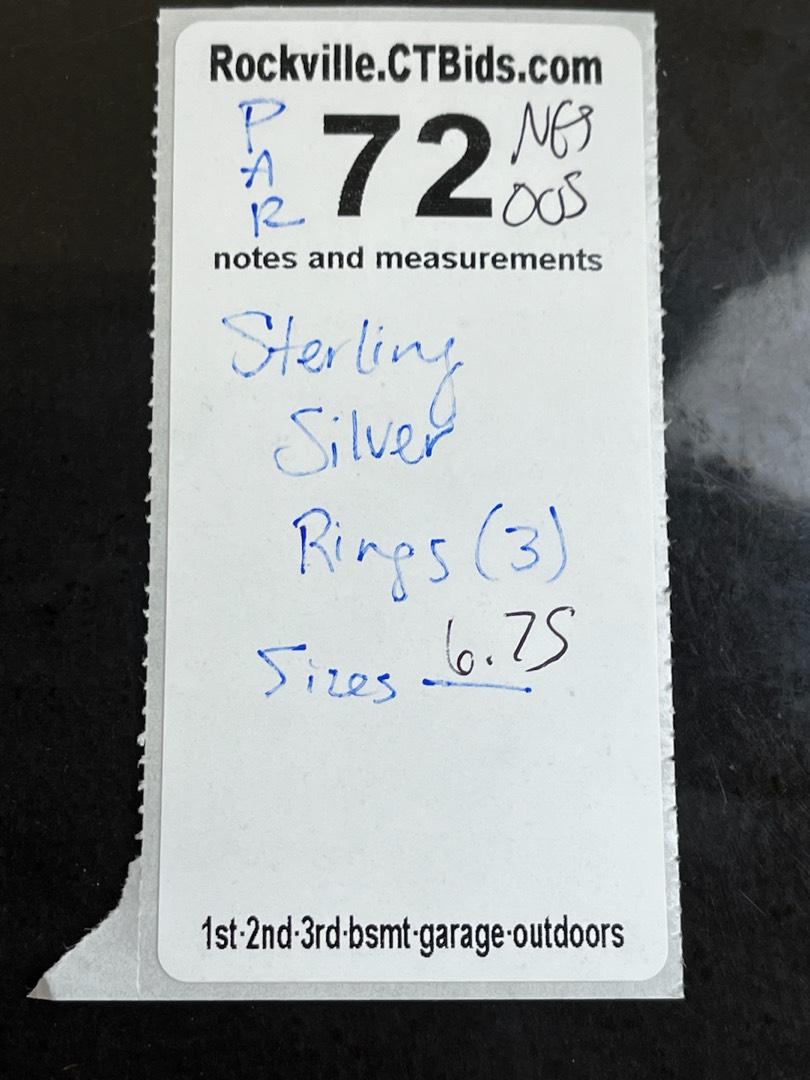 Rockville.CTBids.com
PAR
72
notes and measurements
Sterling
Silver
Rings (3)
Sizes 6.75
1st·2nd·3rd·bsmt·garage·outdoors